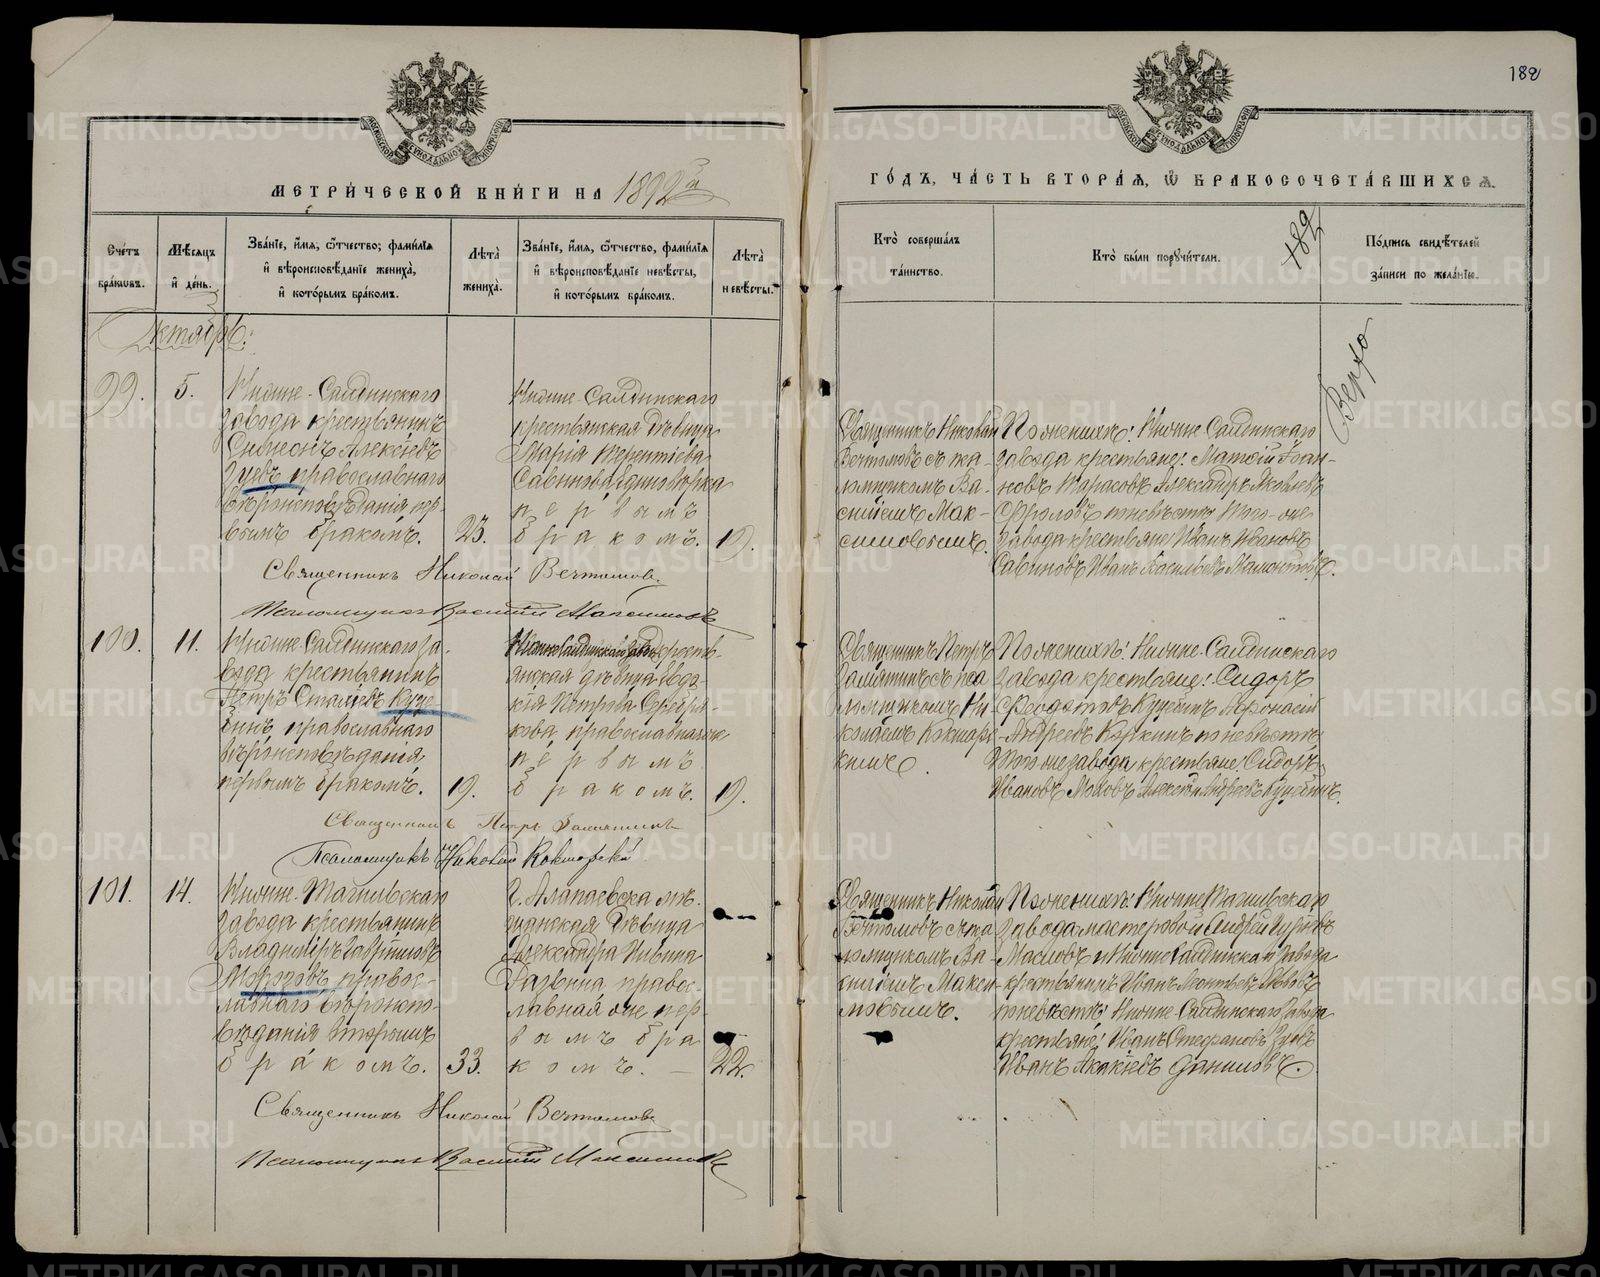 182
МЕТРИЧЕСКОЙ КНИГИ НА 1892й
ГОДЪ, ЧАСТЬ ВТОРАЯ, Ѡ БРАКОСОЧЕТАВШИХСЯ.
Счетъ браковъ.
Мѣсяцъ и день.
Званіе, имя, отчество, фамилія и вѣроисповѣданіе жениха, и которымъ бракомъ.
Лѣта жениха.
Званіе, имя, отчество, фамилія и вѣроисповѣданіе невѣсты, и которымъ бракомъ.
Лѣта невѣсты.
Кто совершалъ таинство.
Кто были поручители.
182
Подпись свидѣтелей записи по желанію.
Октябрь.
Верхо
99.
5.
Нижне-Салдинскаго
завода крестьянинъ
Симеонъ Алексіевъ
Зуевъ, православнаго
вѣроисповѣданія, пер-
вымъ бракомъ.
23.
Нижне-Салдинскаго
крестьянская дѣвица
Марія Терентіева
Савинова, единовѣрка
первымъ
бракомъ.
19.
Священникъ Николай
Вечтомовъ съ пса-
ломщикомъ Ва-
силіемъ Мак-
симовымъ.
По женихѣ: Нижне-Салдинскаго
завода крестьяне: Матѳій Іоан-
новъ Тарасовъ, Александръ Яковлевъ
Фроловъ; по невѣстѣ: Того-же
завода крестьяне: Иванъ Ивановъ
Савиновъ, Иванъ Васильевъ Мамонтовъ.
Священникъ Николай Вечтомовъ
Псаломщикъ Василій Максимовъ
100.
11.
Нижне-Салдинскаго за-
вода крестьянинъ
Петръ
православнаго
вѣроисповѣданія,
первымъ бракомъ.
19.
Нижне Салдинскаго завода кресть-
янская дѣвица Евдо-
кія Петрова Серебря-
кова, православная
первымъ
бракомъ.
19.
Священникъ Петръ
Замятинъ съ пса-
ломщикомъ Ни-
колаемъ Кокшарс-
кимъ.
По женихѣ: Нижне-Салдинскаго
завода крестьяне: Сидоръ
Андреевъ
Того же завода крестьяне: Сидоръ
Ивановъ
Священникъ Петръ Замятинъ
Псаломщикъ Николай Кокшарскій
101.
14.
Нижне-Тагильскаго
завода крестьянинъ
Владиміръ Гавріиловъ
Морозовъ, правос-
лавнаго вѣроиспо-
вѣданія, вторымъ
бракомъ.
33.
Г. Алапаевска мѣ-
щанская дѣвица
Александра
правос-
лавная, пер-
вымъ бра
комъ.
22.
Священникъ Николай
Вечтомовъ съ пса-
ломщикомъ Ва-
силіемъ Макси-
мовымъ.
По женихѣ: Нижне Тагильскаго
завода мастеровой Андрей
Масловъ и Нижне Салдинскаго завода
крестьянинъ Иванъ Леонтьевъ
по невѣстѣ: Нижне-Салдинскаго завода
крестьяне: Иванъ Стефановъ Зуевъ,
Иванъ Акакіевъ Даниловъ.
Священникъ Николай Вечтомовъ
Псаломщикъ Василій Максимовъ
METRIKI.GASO-URAL.RU